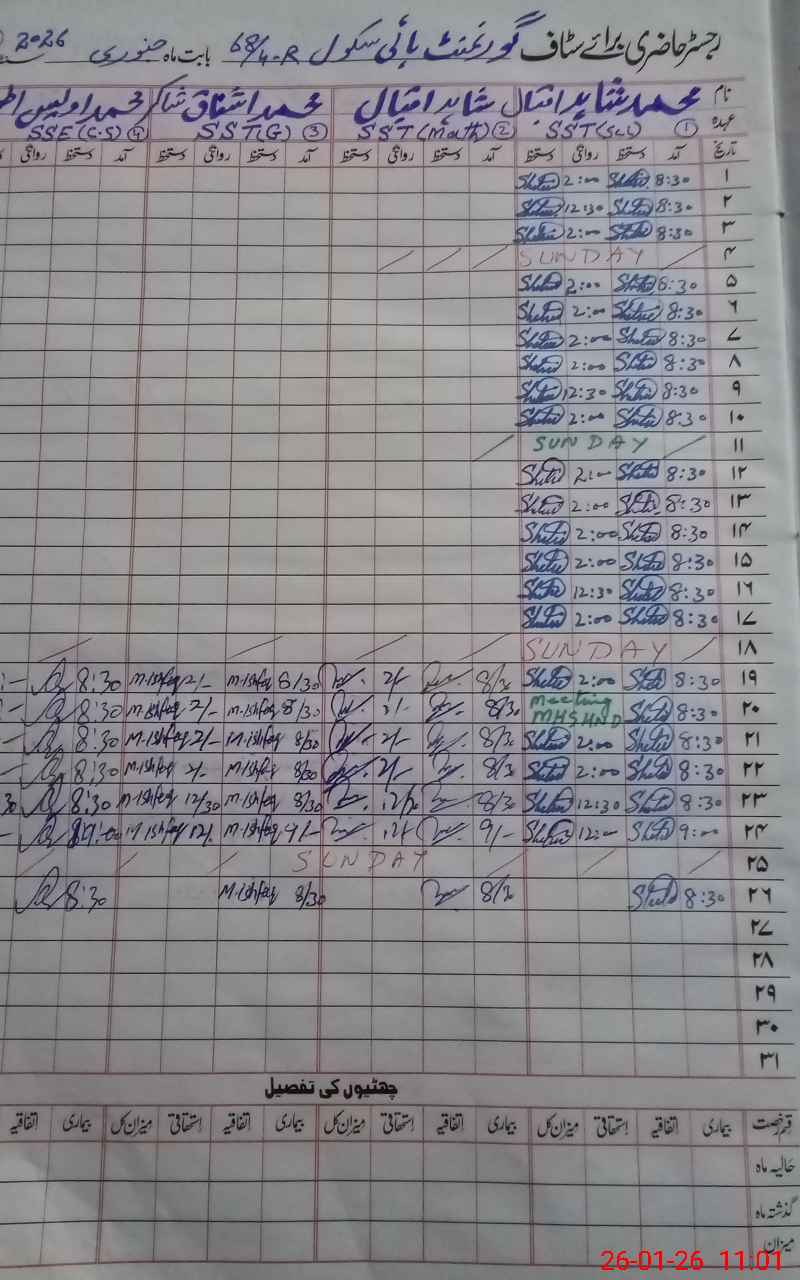 رجسٹر حاضری برائے سٹاف گورنمنٹ ہائی سکول 68/4-R بابت ماہ جنوری 2026
نام محمد شاہد اقبال شاہد اقبال محمد اشفاق شاکر محمد اویس
عہدہ ① SST(Sci) ② SST(Math) ③ SST(G) ④ SSE(C.S)
تاریخ آمد دستخط روانگی دستخط آمد دستخط روانگی دستخط آمد دستخط روانگی دستخط آمد دستخط روانگی
۱ 8:30 Shahid 2:00 Shahid
۲ 8:30 Shahid 12:30 Shahid
۳ 8:30 Shahid 2:00 Shahid
۴ SUNDAY
۵ 8:30 Shahid 2:00 Shahid
۶ 8:30 Shahid 2:00 Shahid
۷ 8:30 Shahid 2:00 Shahid
۸ 8:30 Shahid 2:00 Shahid
۹ 8:30 Shahid 12:30 Shahid
۱۰ 8:30 Shahid 2:00 Shahid
۱۱ SUNDAY
۱۲ 8:30 Shahid 2:00 Shahid
۱۳ 8:30 Shahid 2:00 Shahid
۱۴ 8:30 Shahid 2:00 Shahid
۱۵ 8:30 Shahid 2:00 Shahid
۱۶ 8:30 Shahid 12:30 Shahid
۱۷ 8:30 Shahid 2:00 Shahid
۱۸ SUNDAY
۱۹ 8:30 Shahid 2:00 Shahid 8/30 2/- 8/30 M.Ishfaq 2/- M.Ishfaq 8:30
۲۰ 8:30 Shahid Meeting 8/30 2/- 8/30 M.Ishfaq 2/- M.Ishfaq 8:30
۲۱ 8:30 Shahid 2:00 Shahid 8/30 2/- 8/30 M.Ishfaq 2/- M.Ishfaq 8:30
۲۲ 8:30 Shahid 2:00 Shahid 8/30 2/- 8/30 M.Ishfaq 2/- M.Ishfaq 8:30
۲۳ 8:30 Shahid 12:30 Shahid 8/30 12/30 8/30 M.Ishfaq 12/30 M.Ishfaq 8:30
۲۴ 9:00 Shahid 12:00 Shahid 9/- 12/- 9/- M.Ishfaq 12/- M.Ishfaq
۲۵ SUNDAY
۲۶ 8:30 Shahid 8/30 8/30 M.Ishfaq 8:30
۲۷
۲۸
۲۹
۳۰
۳۱
چھٹیوں کی تفصیل
قسم رخصت بیماری اتفاقیہ استحقاقی میزان کل بیماری اتفاقیہ استحقاقی میزان کل بیماری اتفاقیہ استحقاقی میزان کل بیماری اتفاقیہ
حالیہ ماہ
گذشتہ ماہ
میزان
26-01-26 11:01